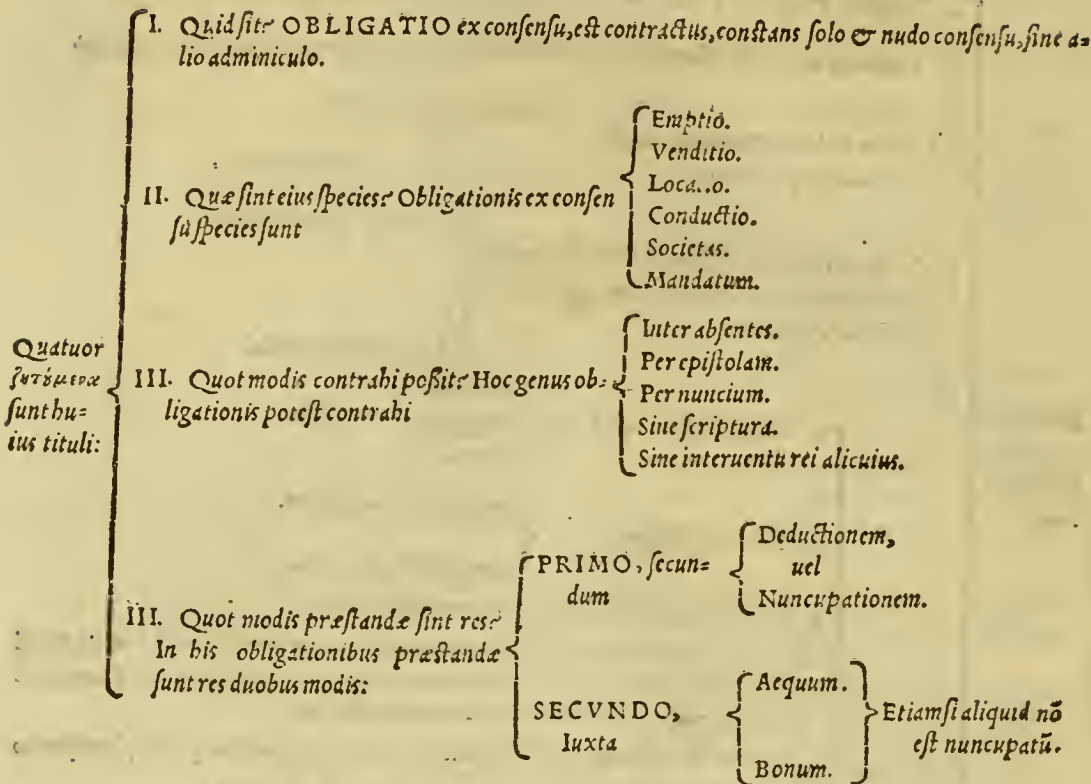 I. Quid sit? OBLIGATIO ex consensu, est contractus, constans solo & nudo consensu, sine a=
lio adminiculo.
II. Quæ sint eius species? Obligationis ex consen
su species sunt
Emptio.
Venditio.
Conductio.
Societas.
Mandatum.
Quatuor
ζητόμενα
sunt hu=
ius tituli:
III. Quot modis contrahi possit? Hoc genus ob=
ligationis potest contrahi
Inter absentes.
Per epistolam.
Per nuncium.
Sine scriptura.
Sine interuentu rei alicuius.
III. Quot modis præstandæ sint res?
In his obligationibus præstandæ
sunt res duobus modis:
PRIMO, secun=
dum
Deductionem,
uel
Nuncupationem.
SECVNDO,
Iuxta
Aequum.
Bonum.
Etiamsi aliquid nō
est nuncupatū.